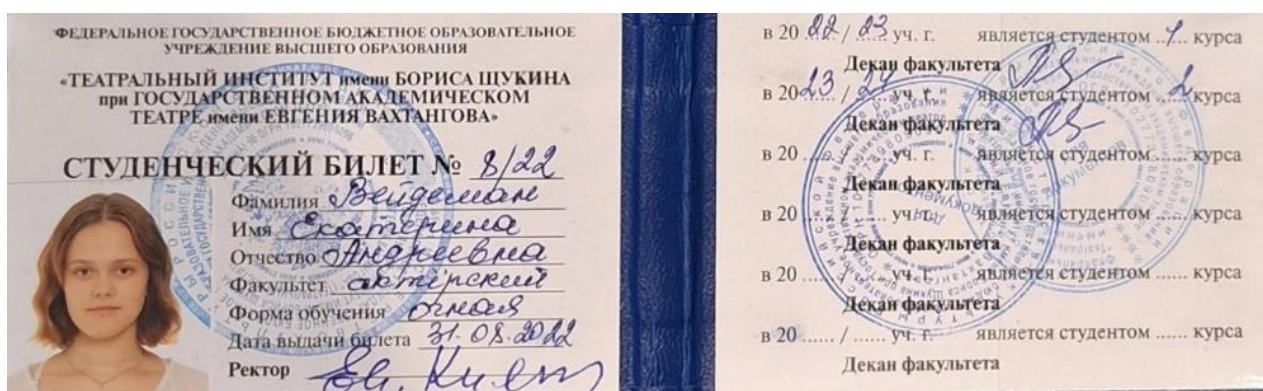 ФЕДЕРАЛЬНОЕ ГОСУДАРСТВЕННОЕ БЮДЖЕТНОЕ ОБРАЗОВАТЕЛЬНОЕ
УЧРЕЖДЕНИЕ ВЫСШЕГО ОБРАЗОВАНИЯ
«ТЕАТРАЛЬНЫЙ ИНСТИТУТ имени БОРИСА ЩУКИНА
при ГОСУДАРСТВЕННОМ АКАДЕМИЧЕСКОМ
ТЕАТРЕ имени ЕВГЕНИЯ ВАХТАНГОВА»
СТУДЕНЧЕСКИЙ БИЛЕТ № 8/22
Фамилия Вейдеман
Имя Екатерина
Отчество Андреевна
Факультет актёрский
Форма обучения очная
Дата выдачи билета 31.08.2022
Ректор
в 20 22 / 23 уч. г. является студентом 1 курса
Декан факультета
в 20 23 / 24 уч. г. является студентом 2 курса
Декан факультета
в 20 ...... / ...... уч. г. является студентом ...... курса
Декан факультета
в 20 ...... / ...... уч. г. является студентом ...... курса
Декан факультета
в 20 ...... / ...... уч. г. является студентом ...... курса
Декан факультета
в 20 ...... / ...... уч. г. является студентом ...... курса
Декан факультета